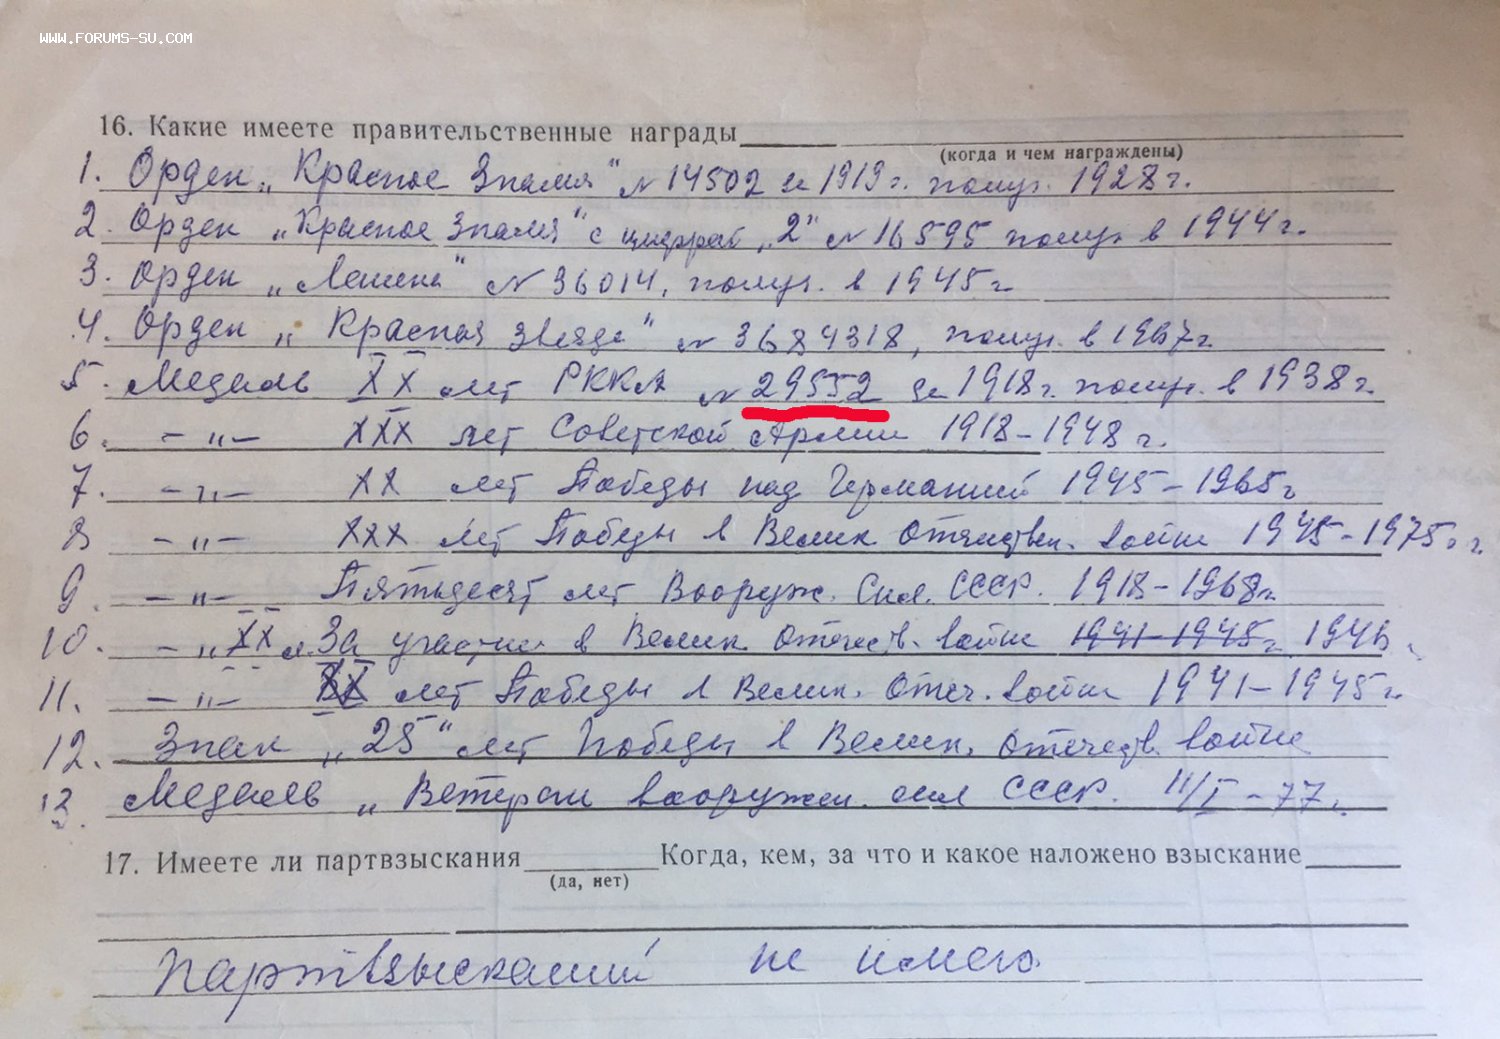 WWW.FORUMS-SU.COM
16. Какие имеете правительственные награды
(когда и чем награждены)
1. Орден „Красное Знамя" № 14502 за 1919 г. получ. 1928 г.
2. Орден „Красное Знамя" с цифрой „2" № 16595 получ. в 1944 г.
3. Орден „Ленина" № 36014, получ. в 1945 г.
4. Орден „Красная Звезда" № 3684318, получ. в 1967 г.
5. Медаль XX лет РККА № 29552 за 1918 г. получ. в 1938 г.
6. – „ – XXX лет Советской Армии 1918 – 1948 г.
7. – „ – XX лет Победы над Германией 1945 – 1965 г.
8 – „ – XXX лет Победы в Велик. Отечествен. войне 1945 – 1975 г.
9. – „ – Пятьдесят лет Вооруж. Сил. СССР. 1918 – 1968 г.
10. – „ XX л. За участие в Велик. Отечеств. войне 1941 – 1945 г. 1946
11. – „ – XX лет Победы в Велик. Отеч. войне 1941 – 1945 г.
12. Знак „25" лет Победы в Велик. Отечеств. войне
13. Медаль „Ветеран вооружен. сил СССР. 11/I – 77 г.
17. Имеете ли партвзыскания Когда, кем, за что и какое наложено взыскание
(да, нет)
Партвзысканий не имею